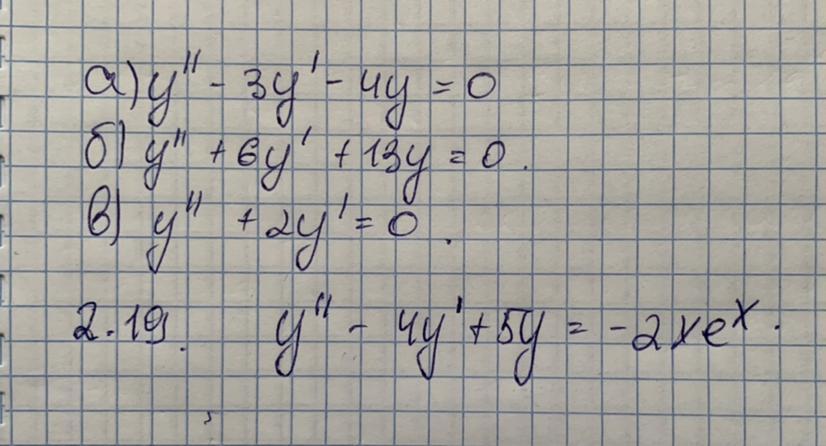 а) y'' - 3y' - 4y = 0
б) y'' + 6y' + 13y = 0.
в) y'' + 2y' = 0.
2.19. y'' - 4y' + 5y = -2xeˣ.